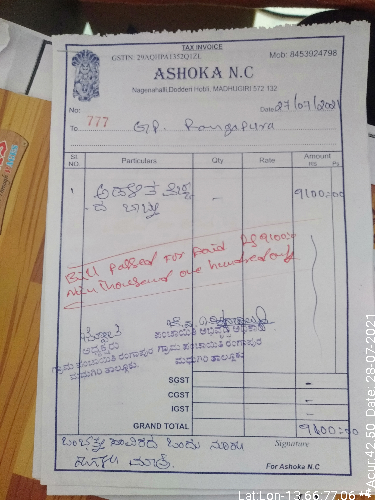 TAX INVOICE
GSTIN: 29AQHPA1352Q1ZL Mob: 8453924798
ASHOKA N.C
Nagenahalli, Dodderi Hobli, MADHUGIRI 572 132
No: 777 Date 27/07/2021
To G.P. Rangapura
SI. NO. Particulars Qty Rate Amount RS Ps.
1 9100=00
Bill passed for paid Rs 9100=
Nine thousand one hundred only
ಅಧ್ಯಕ್ಷರು ಪಂಚಾಯಿತಿ ಅಭಿವೃದ್ಧಿ ಅಧಿಕಾರಿ
ಗ್ರಾಮ ಪಂಚಾಯಿತಿ ರಂಗಾಪುರ ಗ್ರಾಮ ಪಂಚಾಯಿತಿ ರಂಗಾಪುರ
ಮಧುಗಿರಿ ತಾಲ್ಲೂಕು. ಮಧುಗಿರಿ ತಾಲ್ಲೂಕು.
SGST -
CGST -
IGST -
GRAND TOTAL 9100=00
ಒಂಭತ್ತು ಸಾವಿರದ ಒಂದು ನೂರು Signature
ಮಾತ್ರ. For Ashoka N.C
Lat Lon-13.66,77.06
Acur:42.50 Date, 28-07-2021